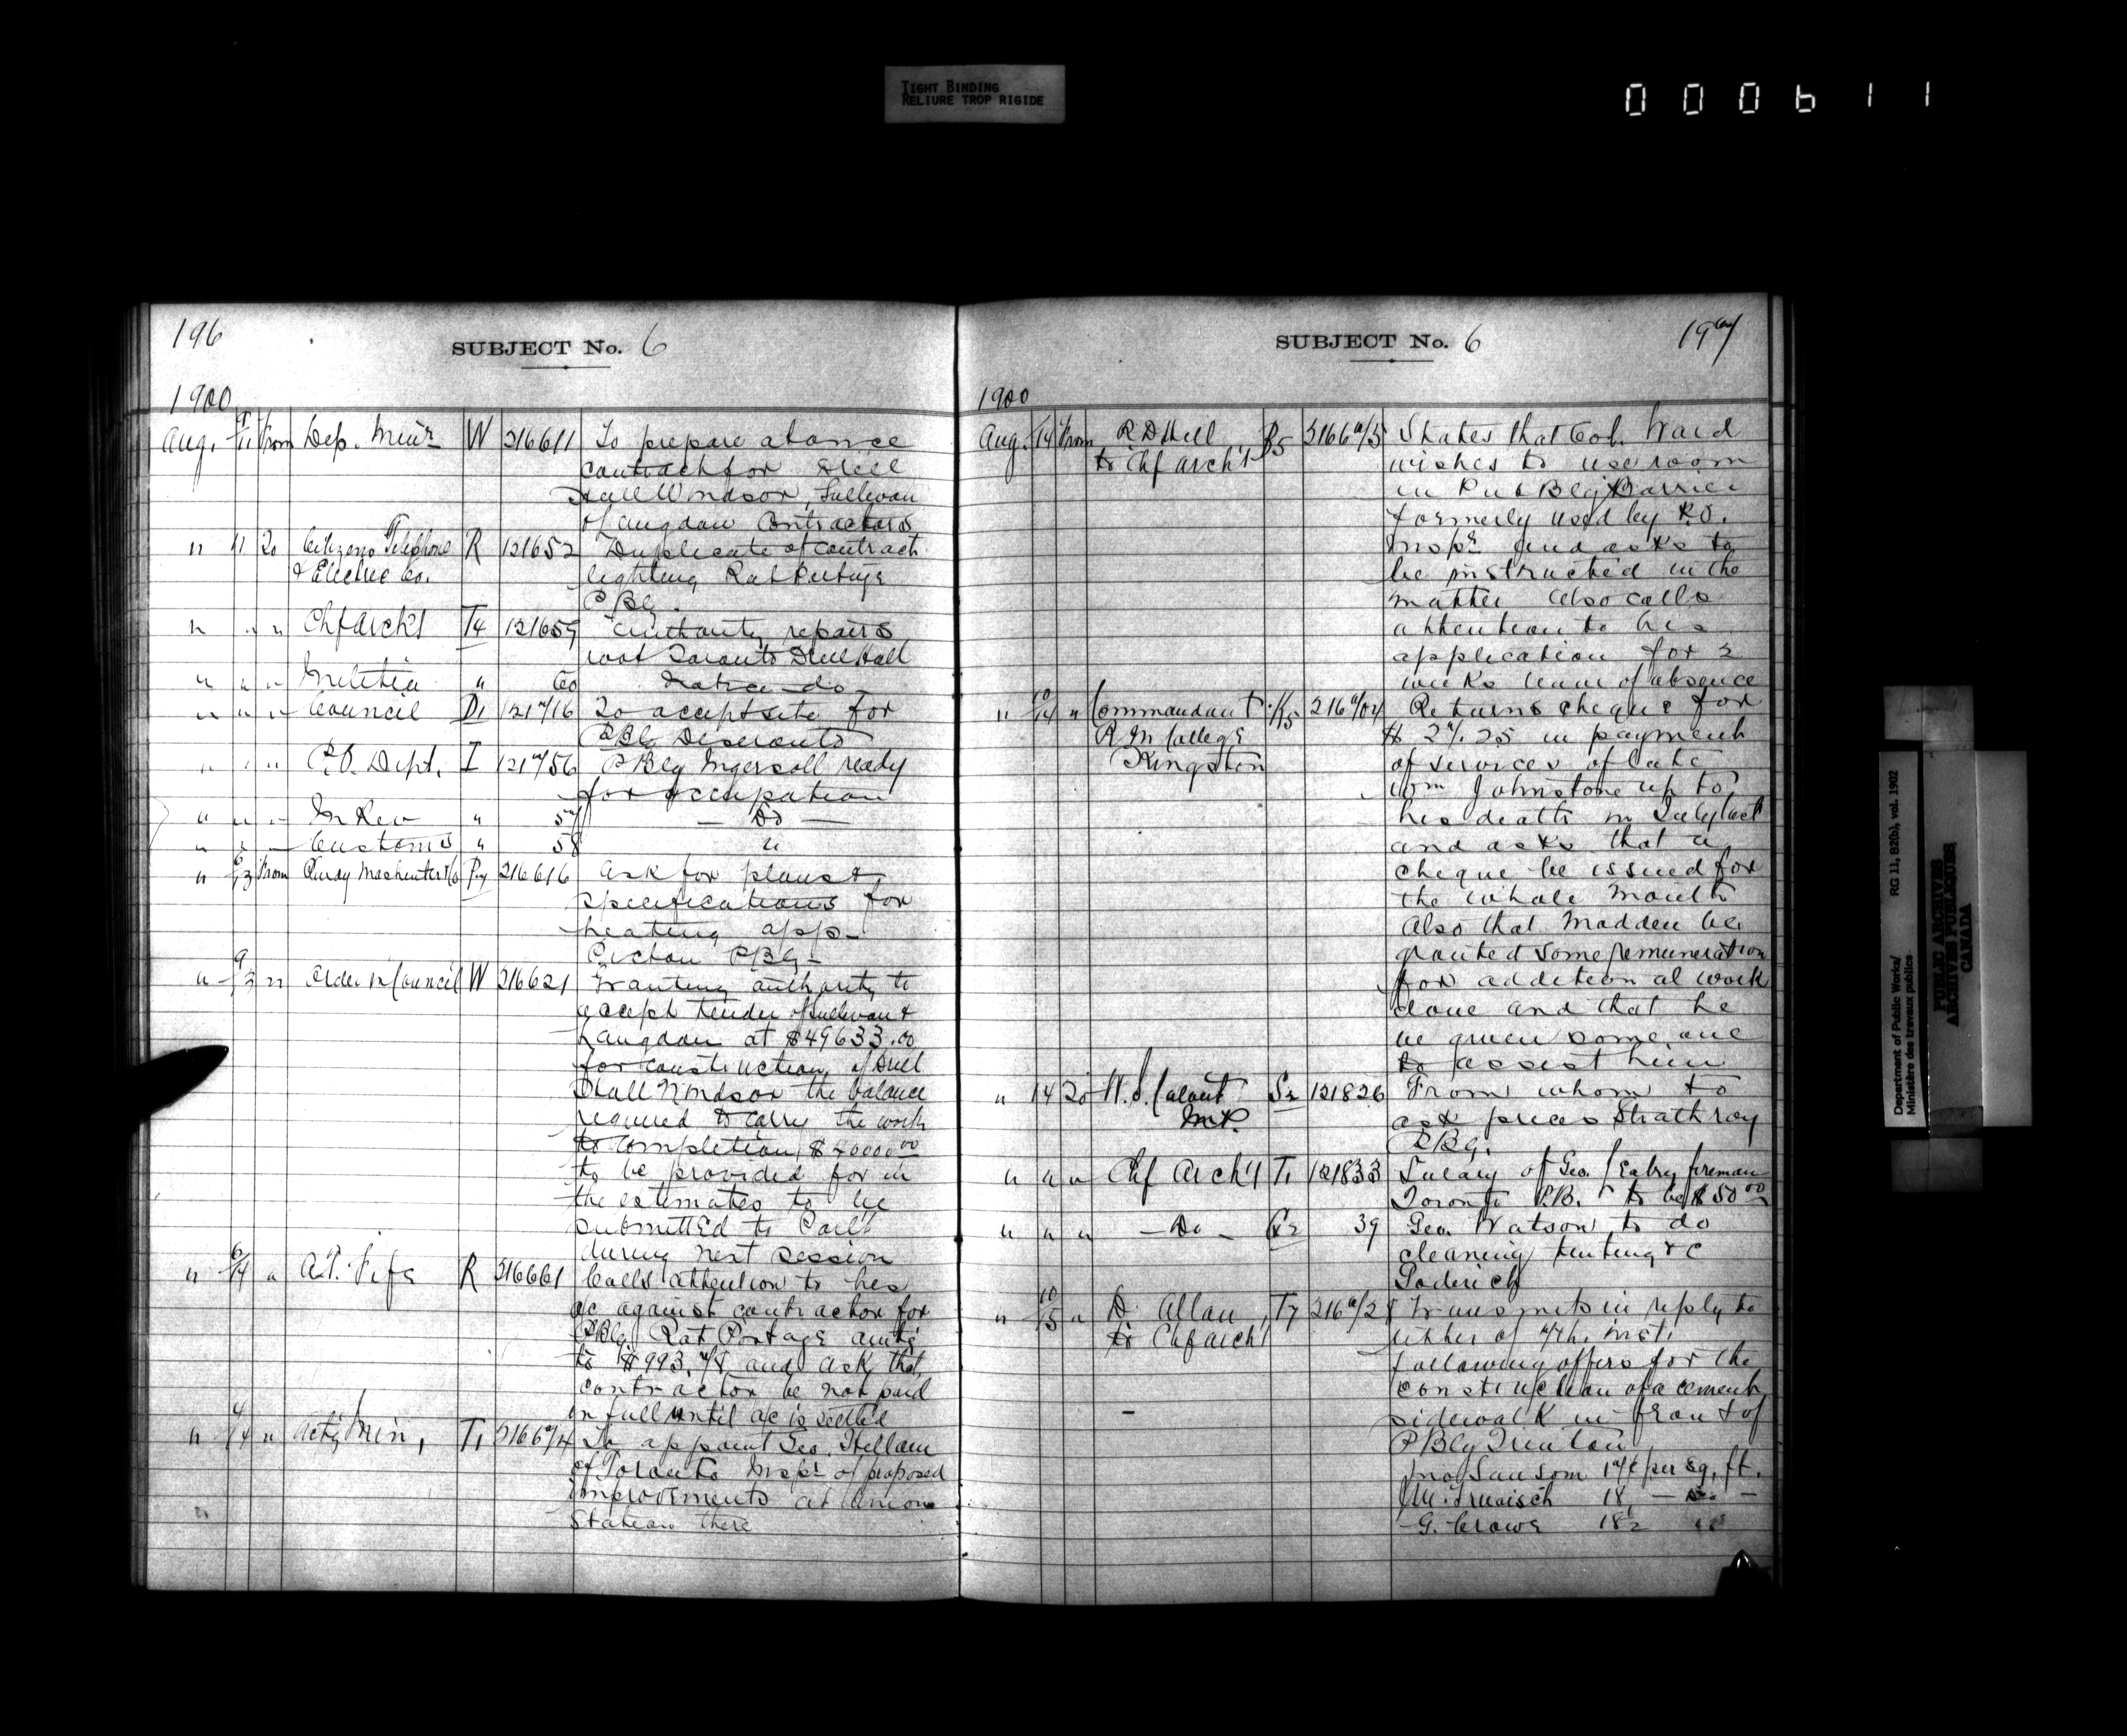 TIGHT BINDING
RELIURE TROP RIGIDE
000611
196
SUBJECT No. 6
1900
Aug. 9/11 From Dep. Minr W 216611 To prepare at once
contract for Drill
Hall Windsor, Sullivan
& Langdon Contractors
" 11 To Citizens Telephone R 121652 Duplicate of contract
& Electric Co. lighting Rat Portage
P Blg.
" " " Chf Arch't T4 121659 Authority repairs
roof Toronto Drill Hall
" " " Militia " 60 Notice do
" " " Council D1 121716 To accept site for
P Blg Deseronto
" " " P.O. Dept. I 121756 P Blg Ingersoll ready
for occupation
" " " In Rev " 57 — Do —
" " " Customs " 58 "
" 6/13 From Purdy Mashinter & Co P7 216616 Ask for plans &
specifications for
heating app-
Picton P Blg -
" 9/13 " Order in Council W 216621 Granting authority to
accept tender of Sullivan &
Langdon at $49633.00
for construction of Drill
Hall Windsor the balance
required to carry the work
to completion $40000.00
to be provided for in
the estimates to be
submitted to Parl't
during next session
" 6/14 " A.T. Fife R 216661 Calls attention to his
a/c against contractor for
P Blg Rat Portage amt'g
to $993.78 and ask that
contractor be not paid
in full until a/c is settled
" 4/14 " Act'g Min. T1 216674 To appoint Geo. Hellam
of Toronto Inspr of proposed
improvements at Union
Station there
SUBJECT No. 6
197
1900
Aug. 14 From R D Hill B5 216673 States that Col. Ward
to Chf Arch't wishes to use room
in Pub Blg Barrie
formerly used by P.O.
Inspr and asks to
be instructed in the
matter also calls
attention to his
application for 2
weeks leave of absence
" 10/14 " Commandant K5 216704 Returns cheque for
R M College $27.25 in payment
Kingston of services of late
Wm Johnstone up to
his death in July last
and asks that a
cheque be issued for
the whole month
Also that Madden be
granted some remuneration
for additional work
done and that he
be given some one
to assist him
" 14 To W.S. Calvert S2 121826 From whom to
M.P. ask prices Strathroy
P Blg.
" " " Chf Arch't T1 121833 Salary of Geo. Eabry fireman
Toronto P.B. to be $50.00
" " " — Do — G2 39 Geo. Watson to do
cleaning tinting &c
Goderich
" 10/15 " D. Allan T7 216728 Transmits in reply to
to Chf Arch't letter of 7th inst.
following offers for the
construction of a cement
sidewalk in front of
P Blg Trenton
Jno Sansom 17¢ per sq. ft.
18 — Do —
G. Crowe 18½ "
Department of Public Works/
Ministère des travaux publics
RG 11, B2(b), vol. 1902
PUBLIC ARCHIVES
ARCHIVES PUBLIQUES
CANADA